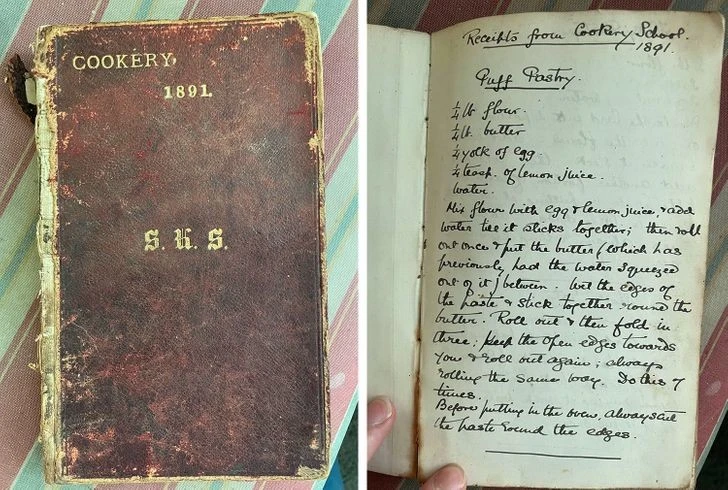 COOKERY,
1891.
S. H. S.
Receipts from Cookery School.
1891.
Puff Pastry.
¼ lb flour.
¼ lb. butter
¼ yolk of egg
¼ teasp. of lemon juice.
water.
Mix flour with egg & lemon juice, & add
water till it sticks together; then roll
out once & put the butter (which has
previously had the water squeezed
out of it) between. Wet the edges of
the paste & stick together round the
butter. Roll out & then fold in
three, keep the open edges towards
you & roll out again; always
rolling the same way. Do this 7
times.
Before putting in the oven, always cut
the paste round the edges.